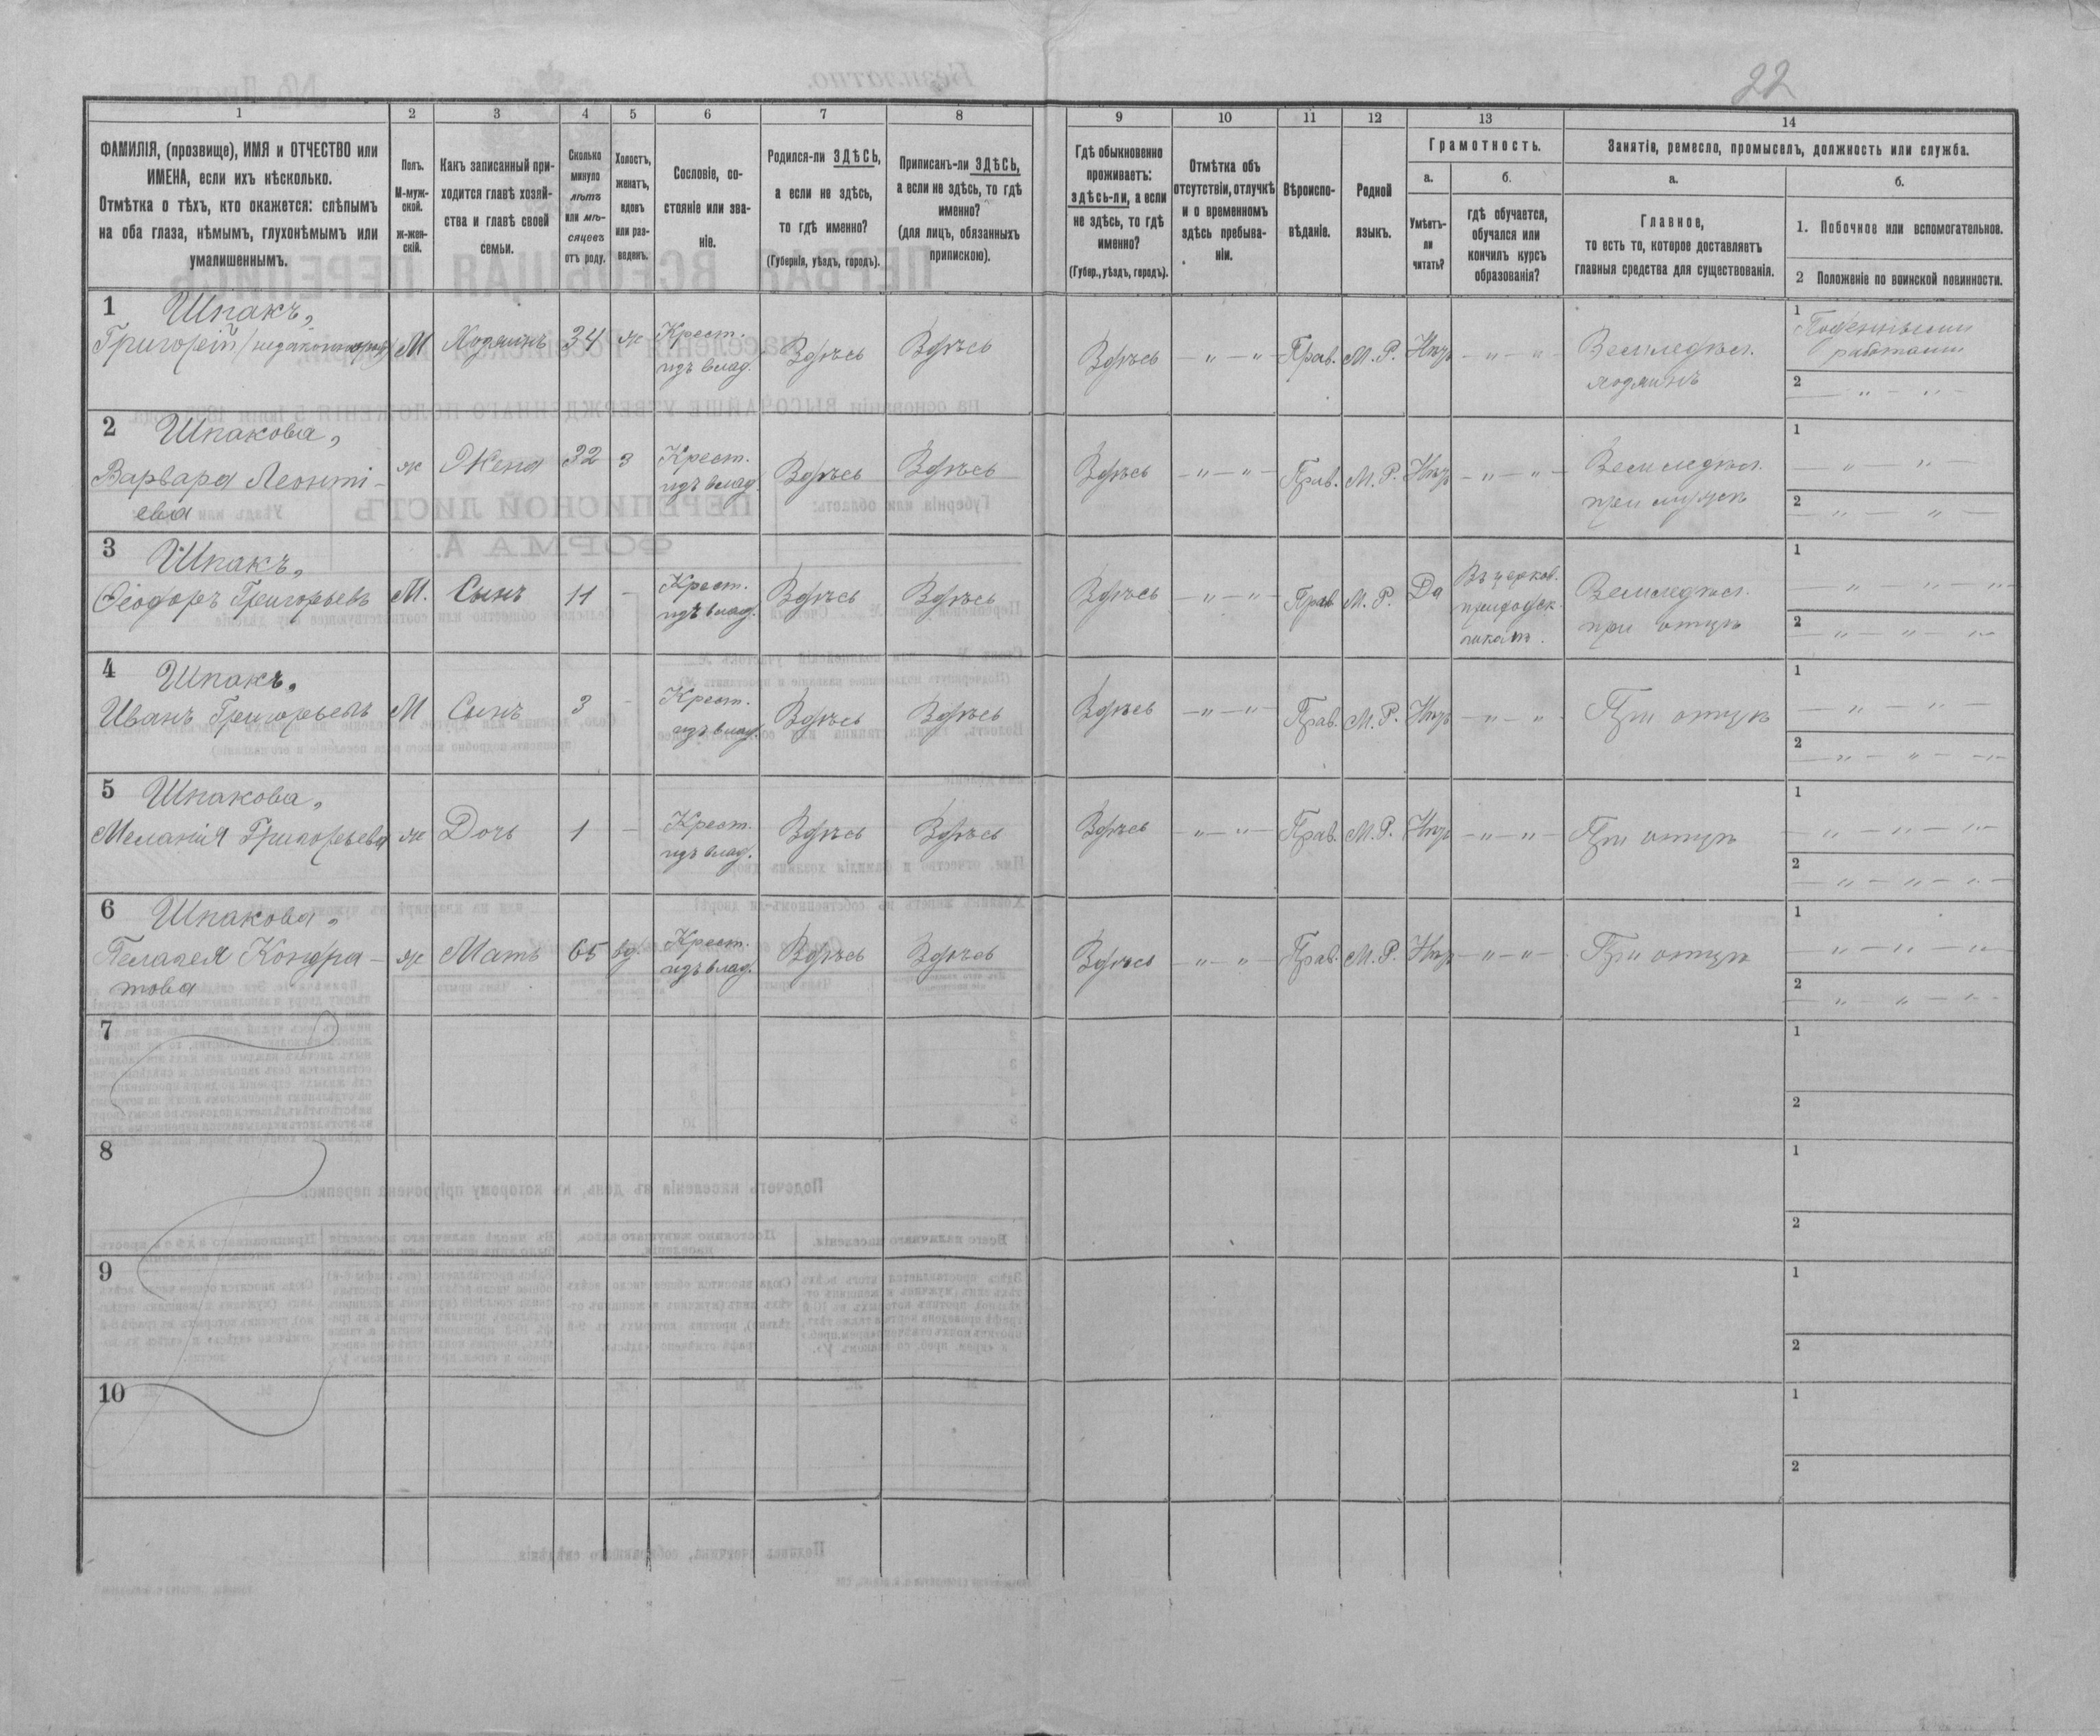 22
1
2
3
4
5
6
7
8
9
10
11
12
13
14
ФАМИЛІЯ, (прозвище), ИМЯ и ОТЧЕСТВО или
ИМЕНА, если ихъ нѣсколько.
Отмѣтка о тѣхъ, кто окажется: слѣпымъ
на оба глаза, нѣмымъ, глухонѣмымъ или
умалишеннымъ.
Полъ.
М-муж-
ской.
ж-жен-
скій.
Какъ записанный при-
ходится главѣ хозяй-
ства и главѣ своей
семьи.
Сколько
минуло
лѣтъ
или мѣ-
сяцевъ
отъ роду.
Холостъ,
женатъ,
вдовъ
или раз-
веденъ.
Сословіе, со-
стояніе или зва-
ніе.
Родился-ли ЗДѢСЬ,
а если не здѣсь,
то гдѣ именно?
(Губернія, уѣздъ, городъ).
Приписанъ-ли ЗДѢСЬ,
а если не здѣсь, то гдѣ
именно?
(для лицъ, обязанныхъ
припискою).
Гдѣ обыкновенно
проживаетъ:
здѣсь-ли, а если
не здѣсь, то гдѣ
именно?
(Губер., уѣздъ, городъ).
Отмѣтка объ
отсутствіи, отлучкѣ
и о временномъ
здѣсь пребыва-
ніи.
Вѣроиспо-
вѣданіе.
Родной
языкъ.
Грамотность.
а.
Умѣетъ-
ли
читать?
б.
гдѣ обучается,
обучался или
кончилъ курсъ
образованія?
Занятіе, ремесло, промыселъ, должность или служба.
а.
Главное,
то есть то, которое доставляетъ
главныя средства для существованія.
б.
1. Побочное или вспомогательное.
2 Положеніе по воинской повинности.
1 Шпакъ,
Григорій
М
Хозяинъ
34
ж
Крест.
изъ влад.
Здѣсь
Здѣсь
Здѣсь
— " — " —
Прав.
М. Р.
Нѣтъ
— " — "
Земледѣл.
хозяинъ
1 Поденными
работами
2 — " — " —
2 Шпакова,
Варвара Леонті-
ева
ж
Жена
32
з
Крест.
изъ влад.
Здѣсь
Здѣсь
Здѣсь
— " — " —
Прав.
М. Р.
Нѣтъ
— " — " —
Земледѣл.
при мужѣ
1 " — " —
2 — " — " —
3 Шпакъ,
Ѳеодоръ Григорьевъ
М.
Сынъ
11
—
Крест.
изъ влад.
Здѣсь
Здѣсь
Здѣсь
— " — " —
Прав.
М. Р.
Да
Въ церков.
приходск.
школѣ.
Земледѣл.
при отцѣ
1 " — " — "
2 — " — " "
4 Шпакъ,
Иванъ Григорьевъ
М
Сынъ
3
—
Крест.
изъ влад.
Здѣсь
Здѣсь
Здѣсь
— " — " —
Прав.
М. Р.
Нѣтъ
— " — "
При отцѣ
1 — " — " —
2 — " — " — "
5 Шпакова,
Меланія Григорьева
ж
Дочь
1
—
Крест.
изъ влад.
Здѣсь
Здѣсь
Здѣсь
" — " —
Прав.
М. Р.
Нѣтъ
— " — " —
При отцѣ
1 — " — " — "
2 — " — " — " —
6 Шпакова,
Пелагея Кондра-
това
ж
Мать
65
вд.
Крест.
изъ влад.
Здѣсь
Здѣсь
Здѣсь
— " — " —
Прав.
М. Р.
Нѣтъ
— " — " —
При отцѣ
1 — " — " — "
2 — " — " — "
7
1
2
8
1
2
9
1
2
10
1
2